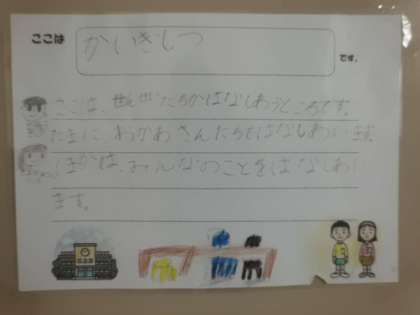 ここは かいぎしつ です。
ここは、せんせいたちがはなしあうところです。
たまに、おかあさんたちもはなしあいます。
ほかは、みんなのことをはなしあい
ます。